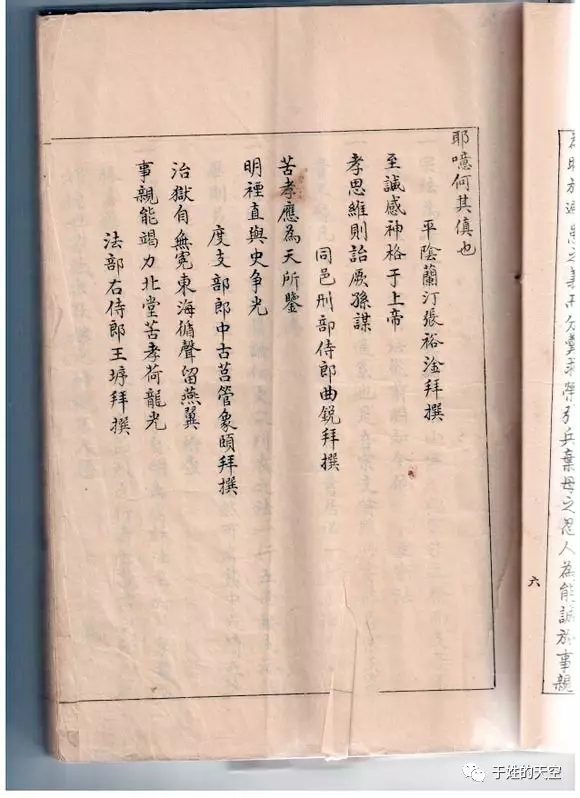 兵棄母之忍人為能誠於事親
六
耶噫何其傎也
平陰蘭汀張裕淦拜撰
至誠感神格于上帝
孝思維則詒厥孫謀
同邑刑部侍郎曲鋭拜撰
苦孝應為天所鑒
明禋直與史争光
度支部郎中古莒管象頤拜撰
治獄自無冤東海循聲留燕翼
事親能竭力北堂苦孝荷龍光
法部右侍郎王垿拜撰
于姓的天空